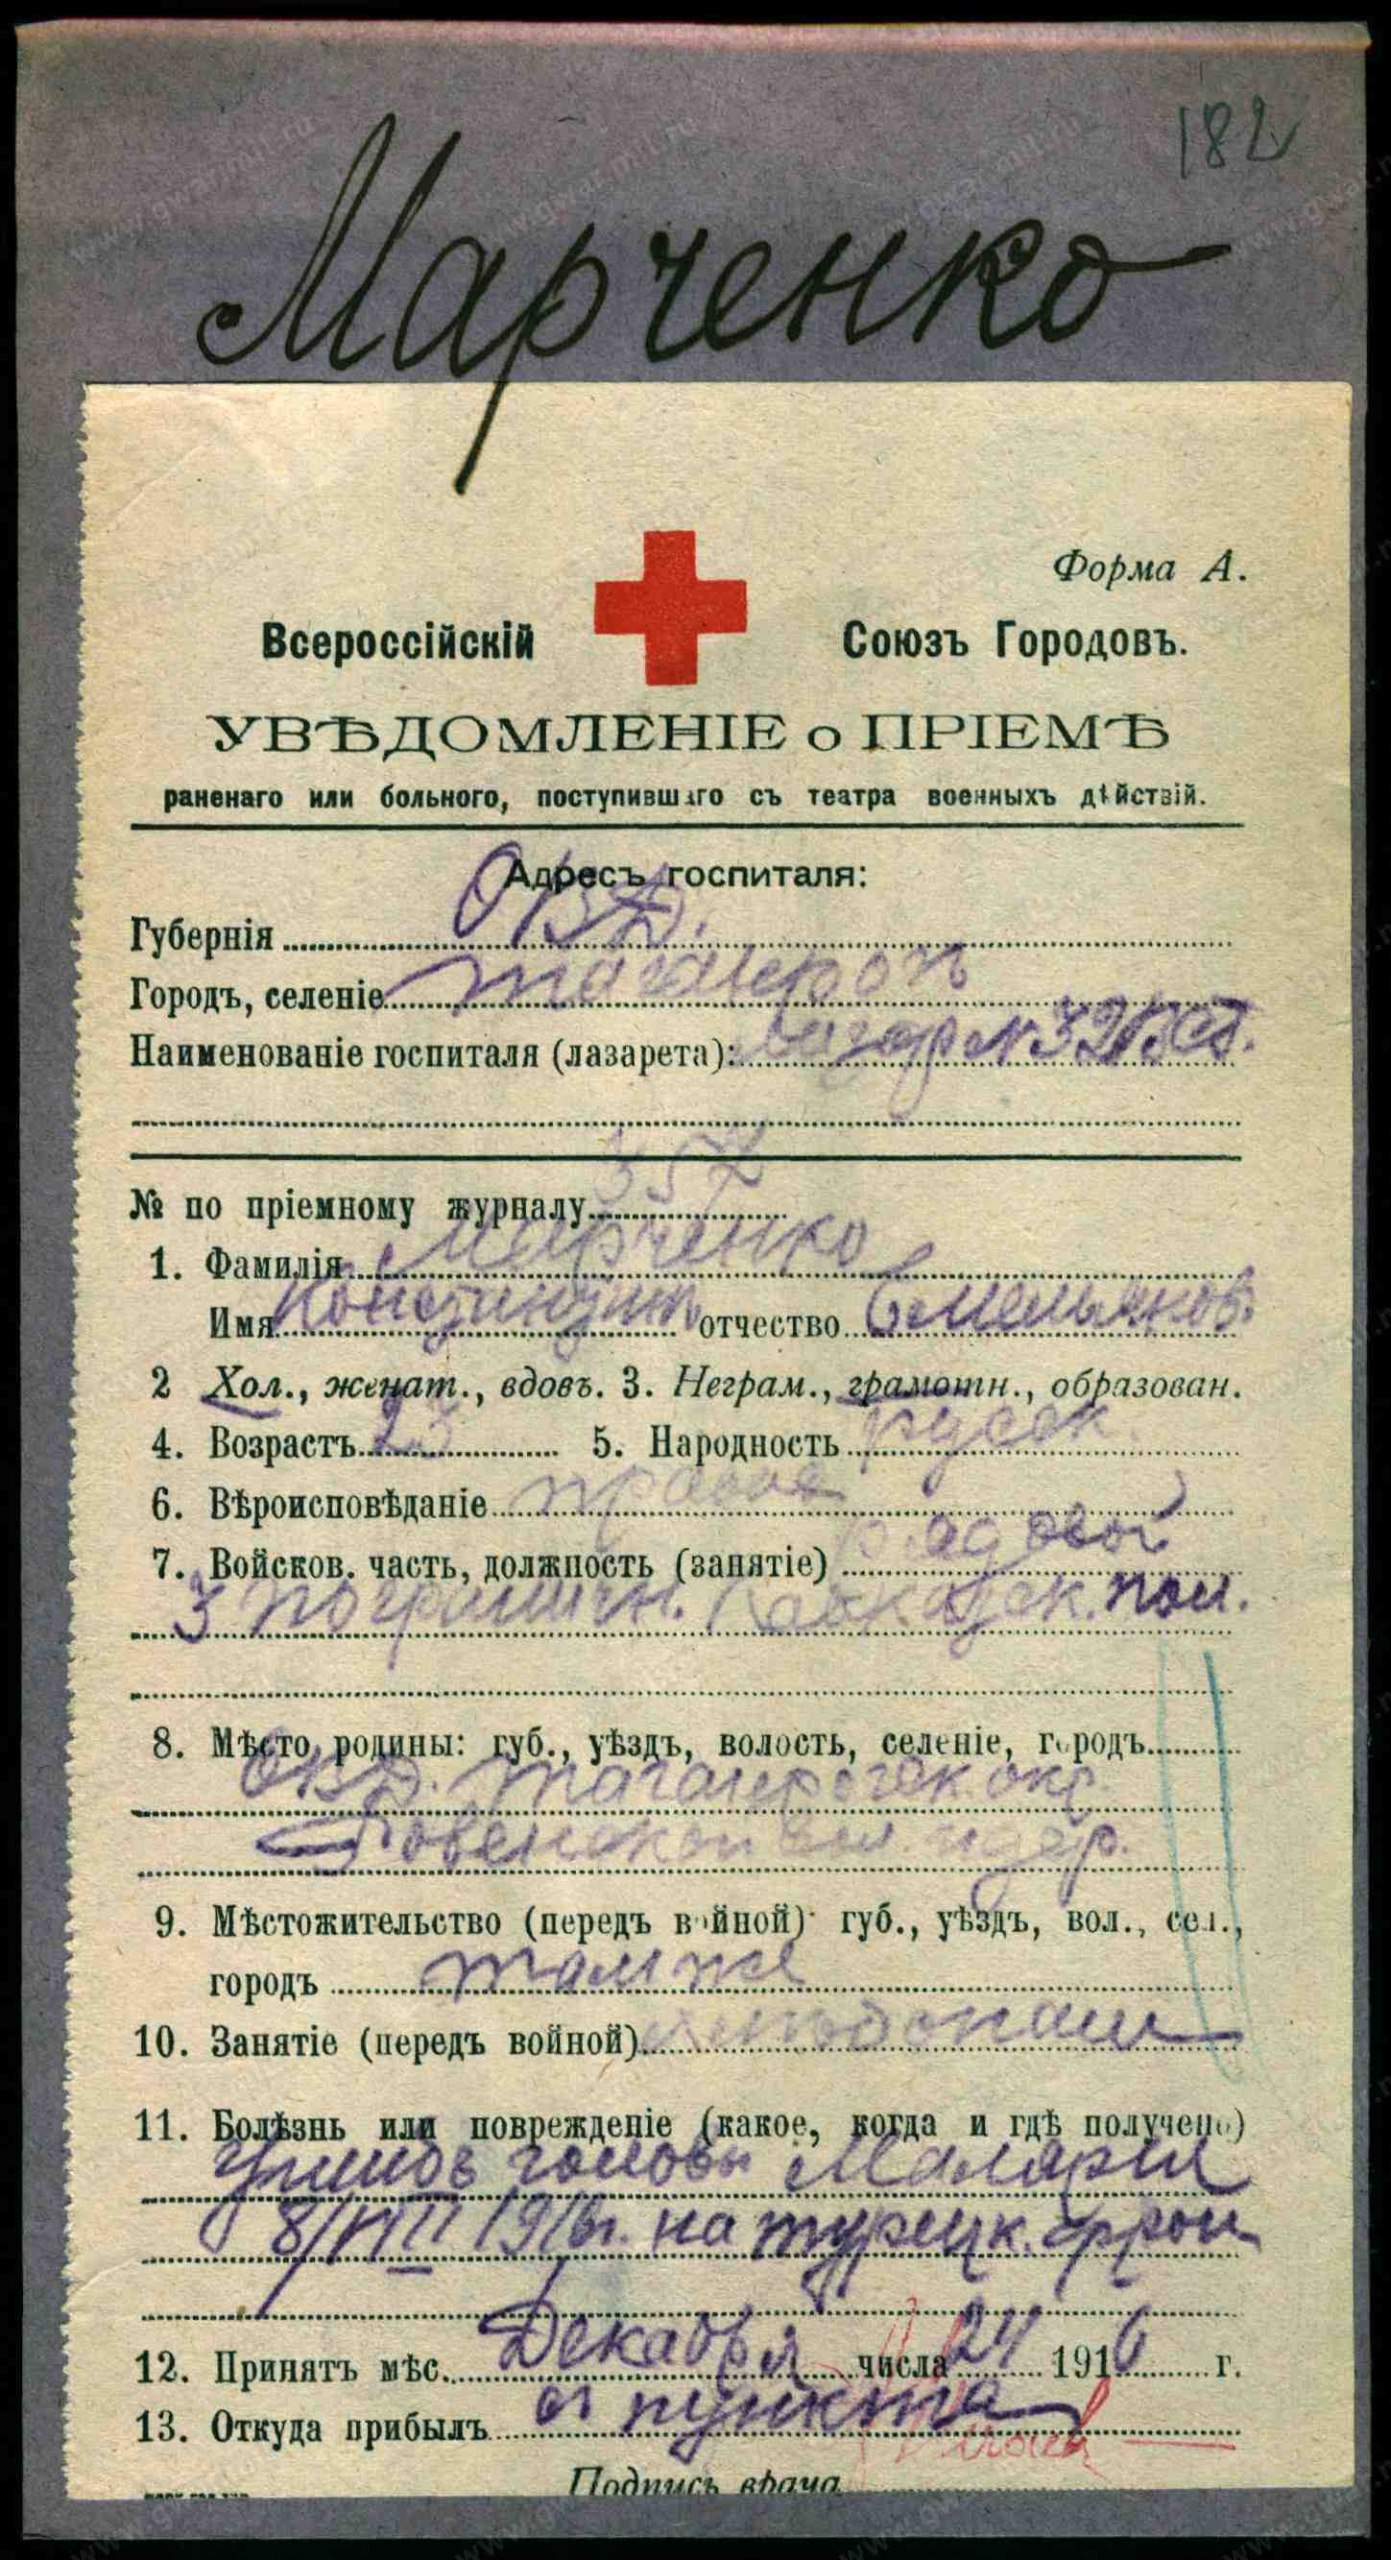 182
Марченко
Форма А.
Всероссійскій Союзъ Городовъ.
УВѢДОМЛЕНІЕ о ПРІЕМѢ
раненаго или больного, поступившаго съ театра военныхъ дѣйствій.
Адресъ госпиталя:
Губернія ОВД.
Городъ, селеніе Таганрогъ
Наименованіе госпиталя (лазарета): лазар №32
№ по пріемному журналу 357
1. Фамилія Марченко
Имя Константинъ отчество Емельянов.
2 Хол., женат., вдовъ. 3. Неграм., грамотн., образован.
4. Возрастъ 23 5. Народность русск.
6. Вѣроисповѣданіе правос
7. Войсков. часть, должность (занятіе) рядовой
3 пограничн. Кавказск. пол.
8. Мѣсто родины: губ., уѣздъ, волость, селеніе, городъ
ОВД. Таганрогск. окр.
Ровенской вол.
9. Мѣстожительство (передъ войной) губ., уѣздъ, вол., сел.,
городъ там же
10. Занятіе (передъ войной) хлебопаш
11. Болѣзнь или поврежденіе (какое, когда и гдѣ получено)
Ушибъ головы Малярія
8/VIII 1916г. на турецк. фрон
12. Принятъ мѣс. Декабря числа 24 1916 г.
13. Откуда прибылъ съ пункта
Подпись врача
www.gwar.mil.ru